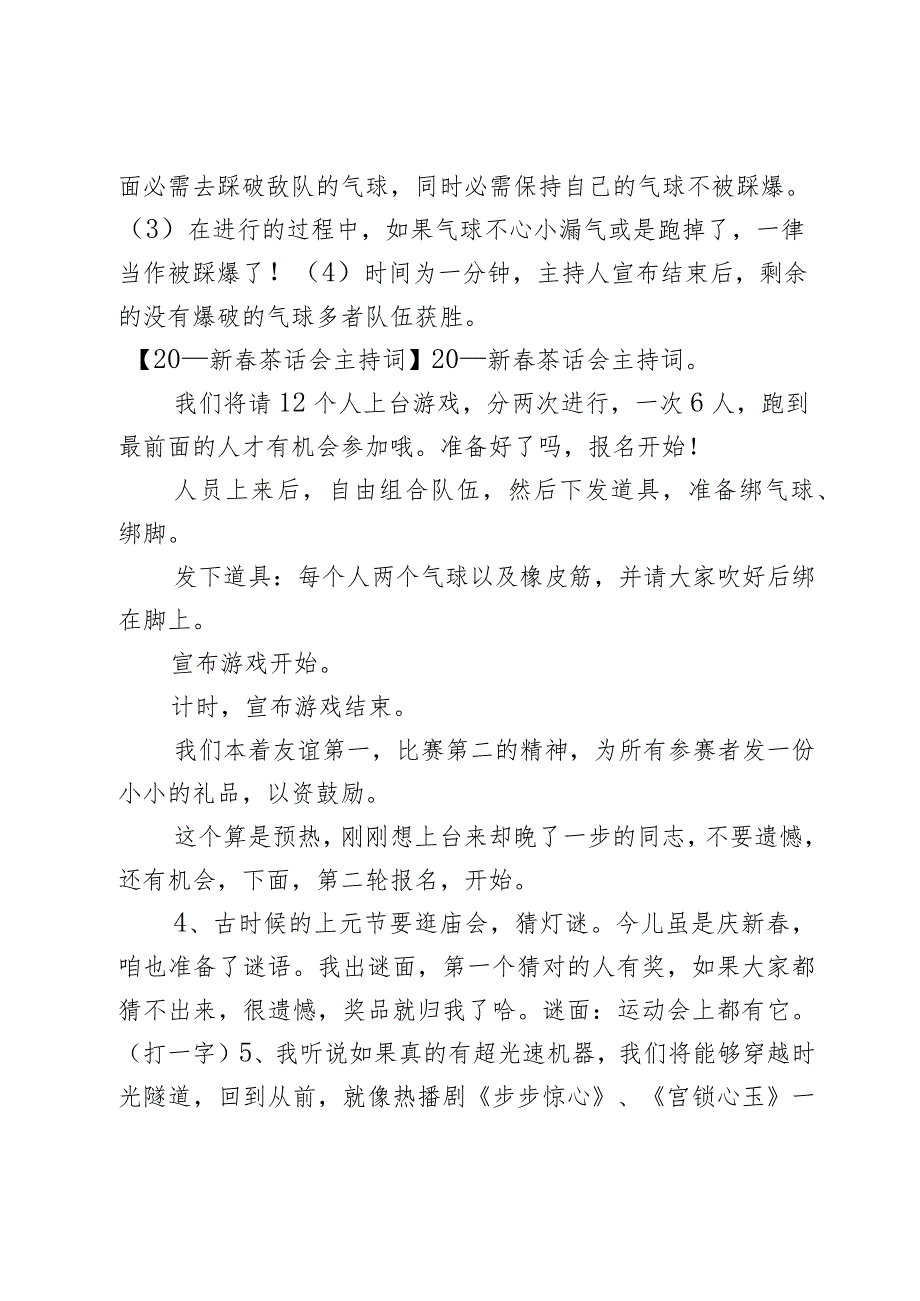 面必需去踩破敌队的气球，同时必需保持自己的气球不被踩爆。
（3）在进行的过程中，如果气球不心小漏气或是跑掉了，一律
当作被踩爆了！（4）时间为一分钟，主持人宣布结束后，剩余
的没有爆破的气球多者队伍获胜。
【20—新春茶话会主持词】20—新春茶话会主持词。
我们将请 12 个人上台游戏，分两次进行，一次 6 人，跑到
最前面的人才有机会参加哦。准备好了吗，报名开始！
人员上来后，自由组合队伍，然后下发道具，准备绑气球、
绑脚。
发下道具：每个人两个气球以及橡皮筋，并请大家吹好后绑
在脚上。
宣布游戏开始。
计时，宣布游戏结束。
我们本着友谊第一，比赛第二的精神，为所有参赛者发一份
小小的礼品，以资鼓励。
这个算是预热，刚刚想上台来却晚了一步的同志，不要遗憾，
还有机会，下面，第二轮报名，开始。
4、古时候的上元节要逛庙会，猜灯谜。今儿虽是庆新春，
咱也准备了谜语。我出谜面，第一个猜对的人有奖，如果大家都
猜不出来，很遗憾，奖品就归我了哈。谜面：运动会上都有它。
（打一字）5、我听说如果真的有超光速机器，我们将能够穿越时
光隧道，回到从前，就像热播剧《步步惊心》、《宫锁心玉》一